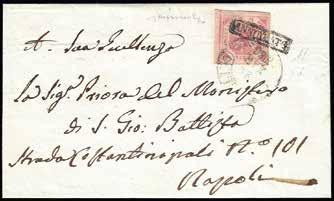 A Sua Eccellenza
La Sigª Priora del Monistero
di S. Gio: Battista
Strada Costantinopoli Nº 101
Napoli